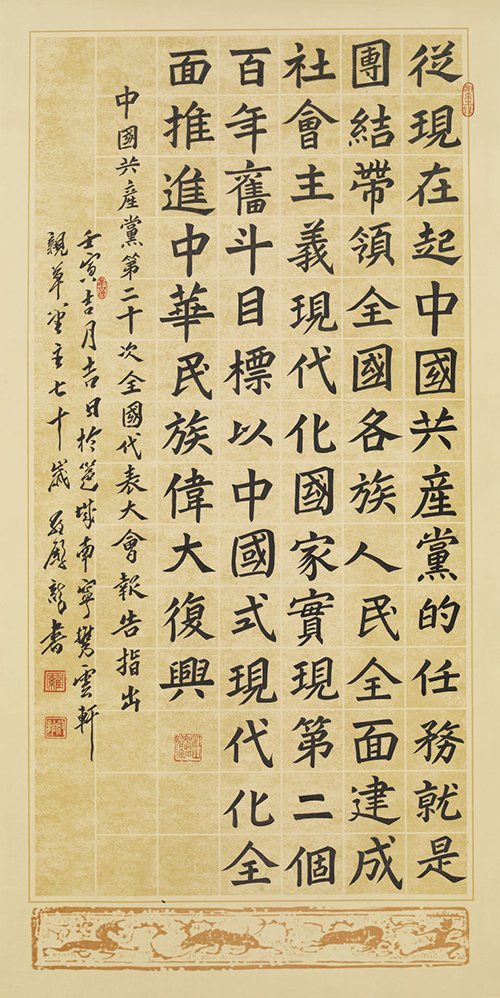 從現在起中國共產黨的任務就是
團結帶領全國各族人民全面建成
社會主義現代化國家實現第二個
百年奮斗目標以中國式現代化全
面推進中華民族偉大復興
中國共產黨第二十次全國代表大會報告指出
壬寅吉月吉日於邕城南寧雲軒
親草堂主七十歲龍書